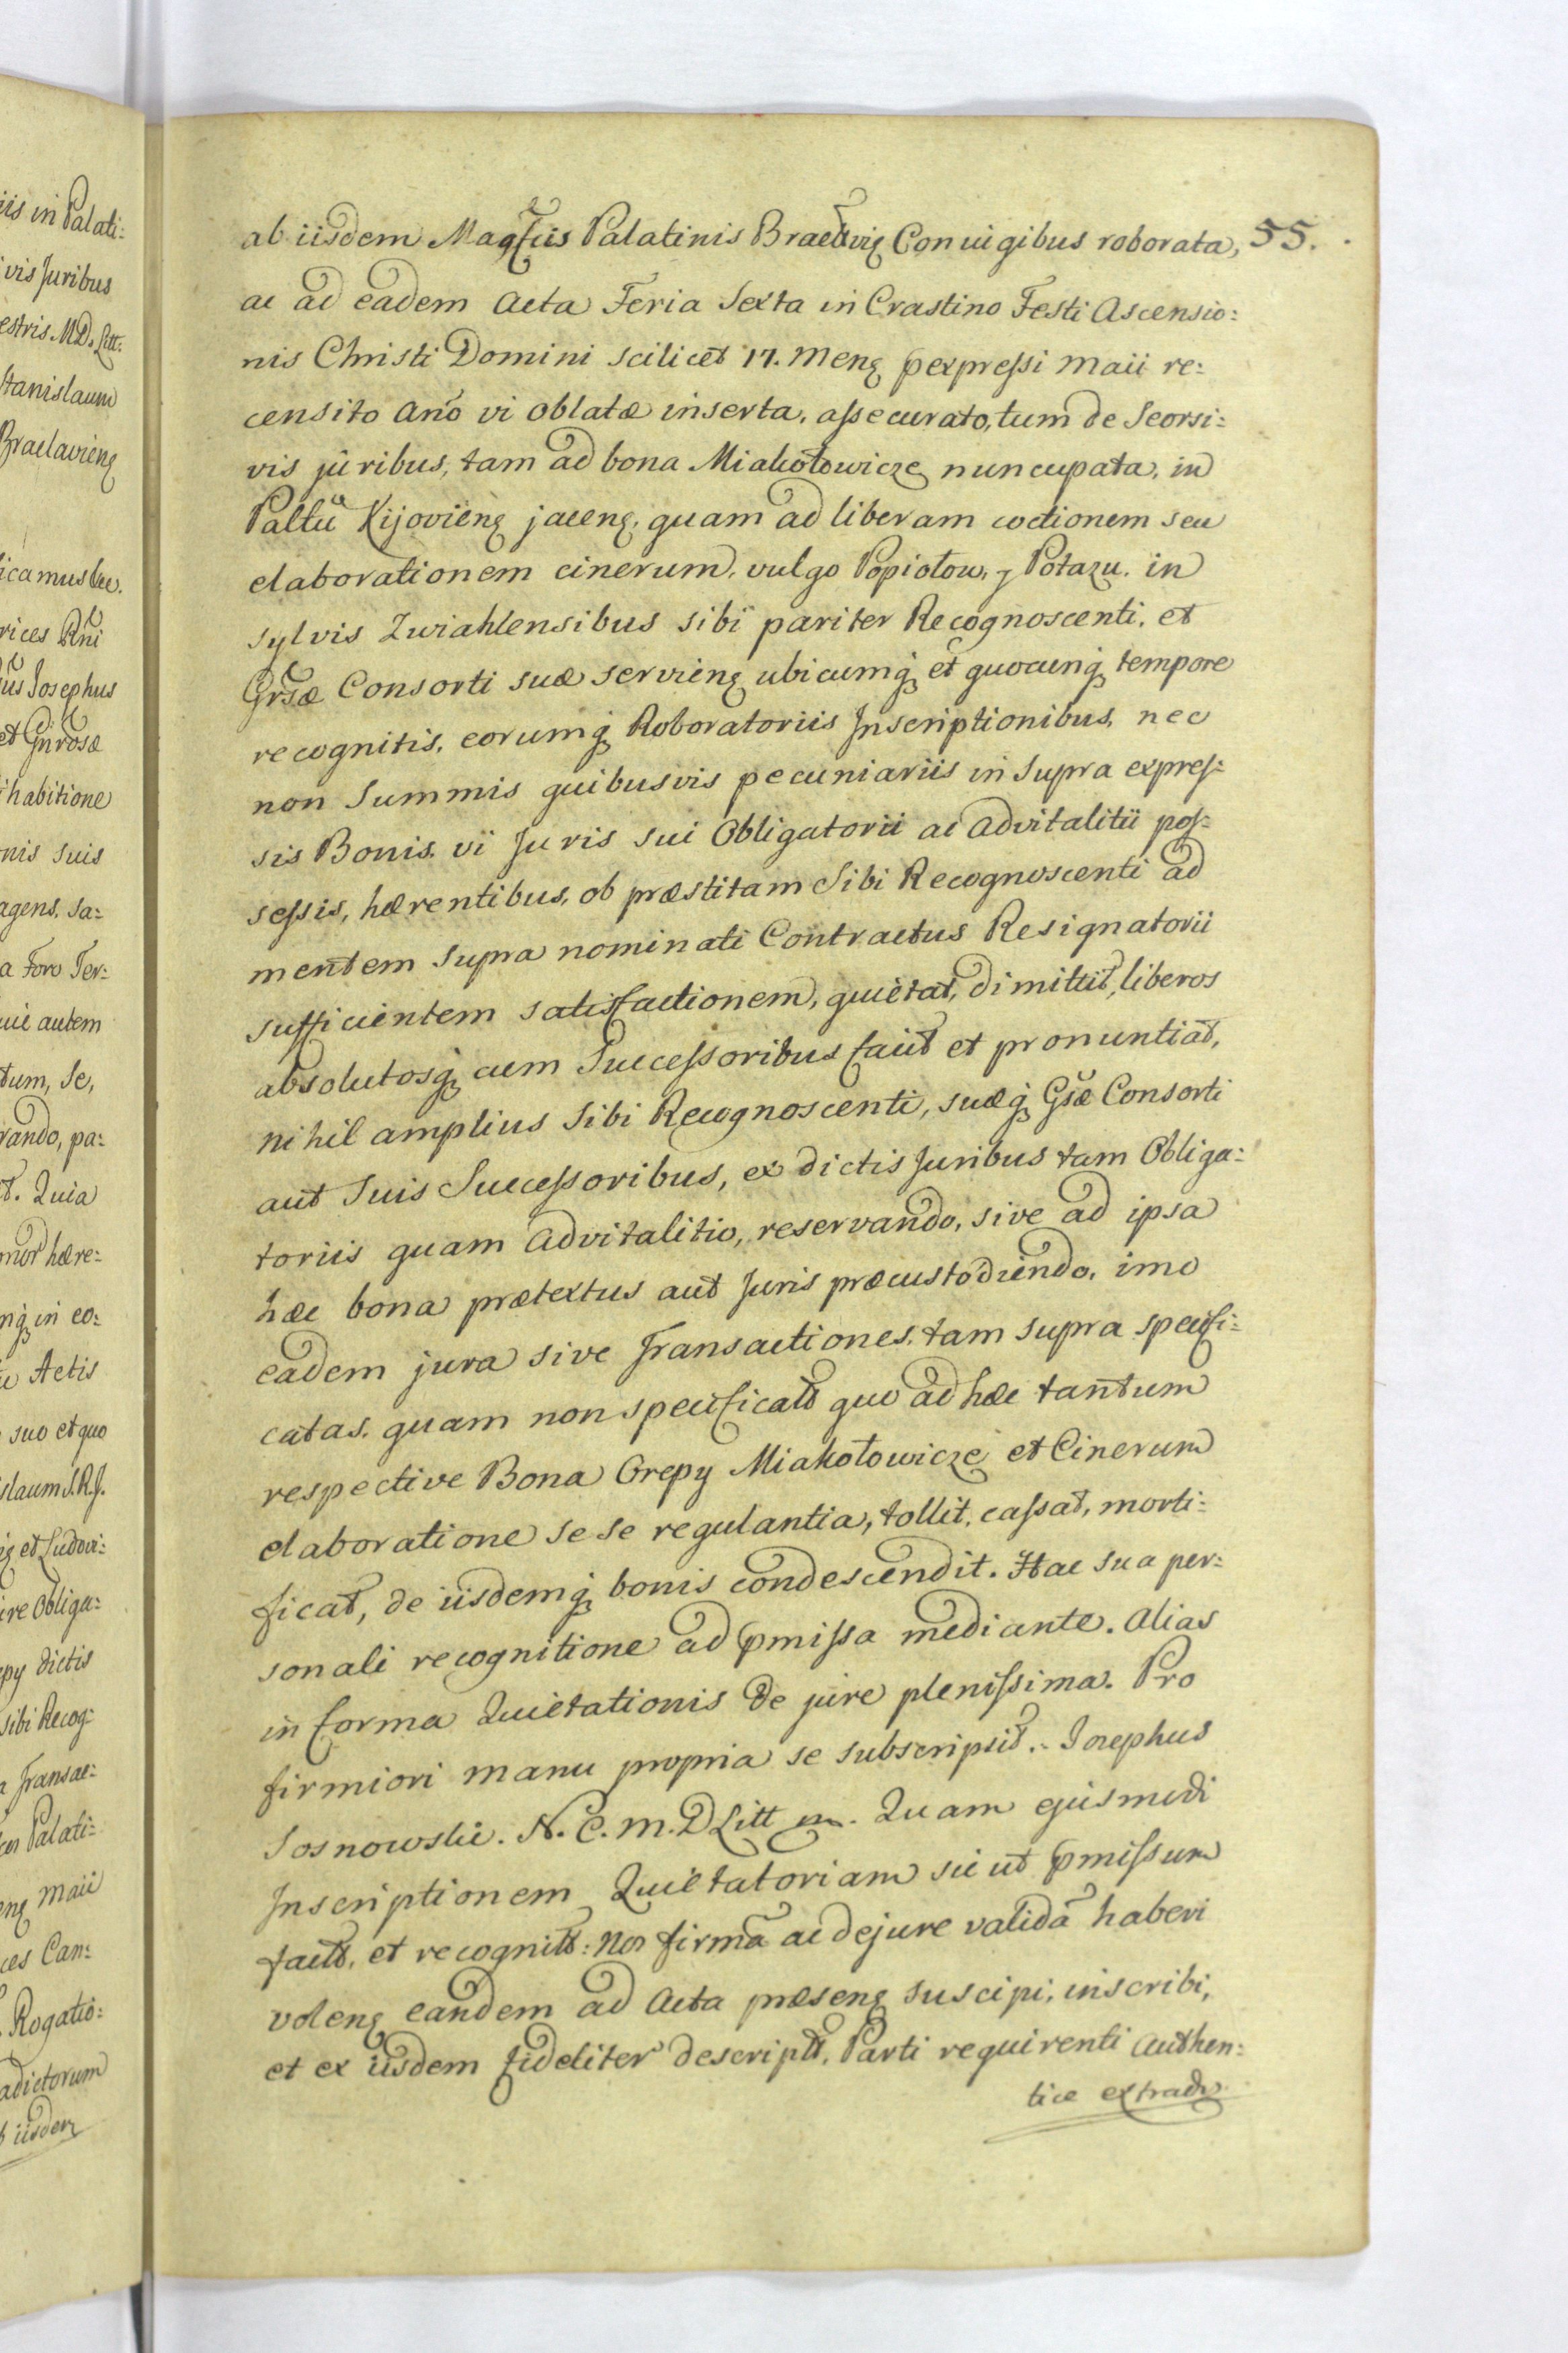 iis in Palati:
vis Juribus
estris M.D. Litt:
Stanislaum
Braclavienq
icamus
rices Rñi
ius Josephus
et Gñrosæ
ihabitione
nis suis
agens, sa:
a Foro Ter:
uie autem
tum, Se,
rando, pa:
t. Quia
hære:
nq́ in eo:
Actis
suo et quo
slaum S.R.J.
et Ludovi:
ire Obliga:
epy dictis
sibi Recog:
a Transac:
Palati:
enq Maii
ces Can:
Rogatio:
adictorum
iisdem
ab iisdem Magfcis Palatinis Braclvieq Conjugibus roborata, 55.
ac ad eadem Acta Feria Sexta in Crastino Festi Ascensio:
nis Christi Domini scilicet 17. Menq pexpressi Maii re:
censito Año vi Oblatæ inserta, assecurato, tum de Seorsi:
vis juribus, tam ad bona Miakołowicze nuncupata, in
Paltũ Kijovienq jacenq, quam ad liberam coctionem seu
elaborationem cinerum, vulgo Popiołow, y Potazu, in
sylvis Zwiahlensibus sibi pariter Recognoscenti, et
Grsæ Consorti suæ servienq ubicumq́ et quocunq́ tempore
recognitis, eorumq́ Roboratoriis Inscriptionibus, nec
non Summis quibusvis pecuniariis in supra expres:
sis Bonis, vi Juris sui Obligatorii ac Advitalitii pos:
sessis, hærentibus, ob præstitam Sibi Recognoscenti ad
mentem supra nominati Contractus Resignatorii
sufficientem satisfactionem, quietat, dimittit, liberos
absolutosq́ cum Successoribus facit et pronuntiat,
nihil amplius Sibi Recognoscenti, suæq́ Gsæ Consorti
aut Suis Successoribus, ex dictis Juribus tam Obliga:
toriis quam Advitalitio, reservando, sive ad ipsa
hæc bona prætextus aut Juris præcustodiendo, imo
eadem jura sive Transactiones, tam supra specifi:
catas, quam non specificat quo ad hæc tantum
respective Bona Orepy Miakołowicze et Cinerum
elaboratione se se regulantia, tollit, cassat, morti:
ficat, de iisdemq́ bonis condescendit. Hac sua per:
sonali recognitione ad pmissa mediante. Alias
in forma Quietationis de jure plenissima. Pro
firmiori manu propria se subscripsit. Josephus
Sosnowski. N. C. M. D Litt mp. Quam ejusmodi
Inscriptionem Quietatoriam sicut pmissum
facit, et recognit: Nos firmã ac dejure validã haberi
volenq eandem ad Acta præsenq suscipi, inscribi,
et ex iisdem fideliter descript, Parti requirenti Authen:
tice extradi